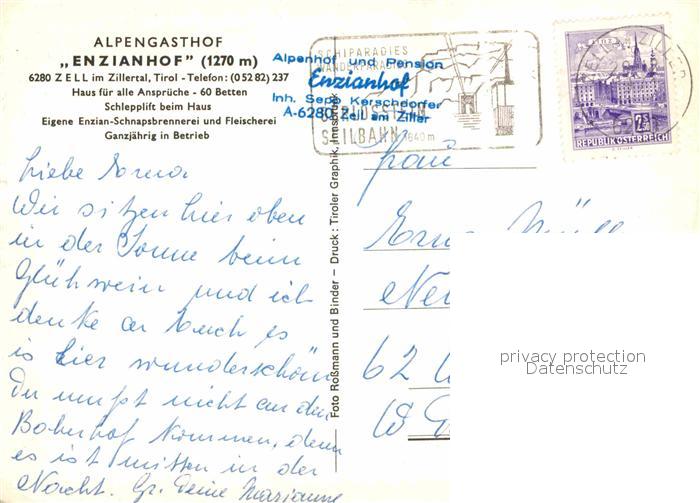 ALPENGASTHOF
„ENZIANHOF" (1270 m)
6280 ZELL im Zillertal, Tirol - Telefon: (05282) 237
Haus für alle Ansprüche - 60 Betten
Schlepplift beim Haus
Eigene Enzian-Schnapsbrennerei und Fleischerei
Ganzjährig in Betrieb
SCHIPARADIES
WANDERPARADIES
SEILBAHN
1640 m
Alpenhof und Pension
Enzianhof
Inh. Sepp Kerschdorfer
A-6280 Zell am Ziller
ZILLER
2S
REPUBLIK ÖSTERREICH
Liebe Erna
Wir sitzen hier oben
in der Sonne beim
Glühwein und ich
denke an Euch es
is hier wunderschön
Du mußt nicht an den
Bahnhof kommen, denn
es ist mitten in der
Nacht. Gr. Deine Marianne
Foto Roßmann und Binder – Druck: Tiroler Graphik, Innsbruck
Frau
Erna
62
privacy protection
Datenschutz